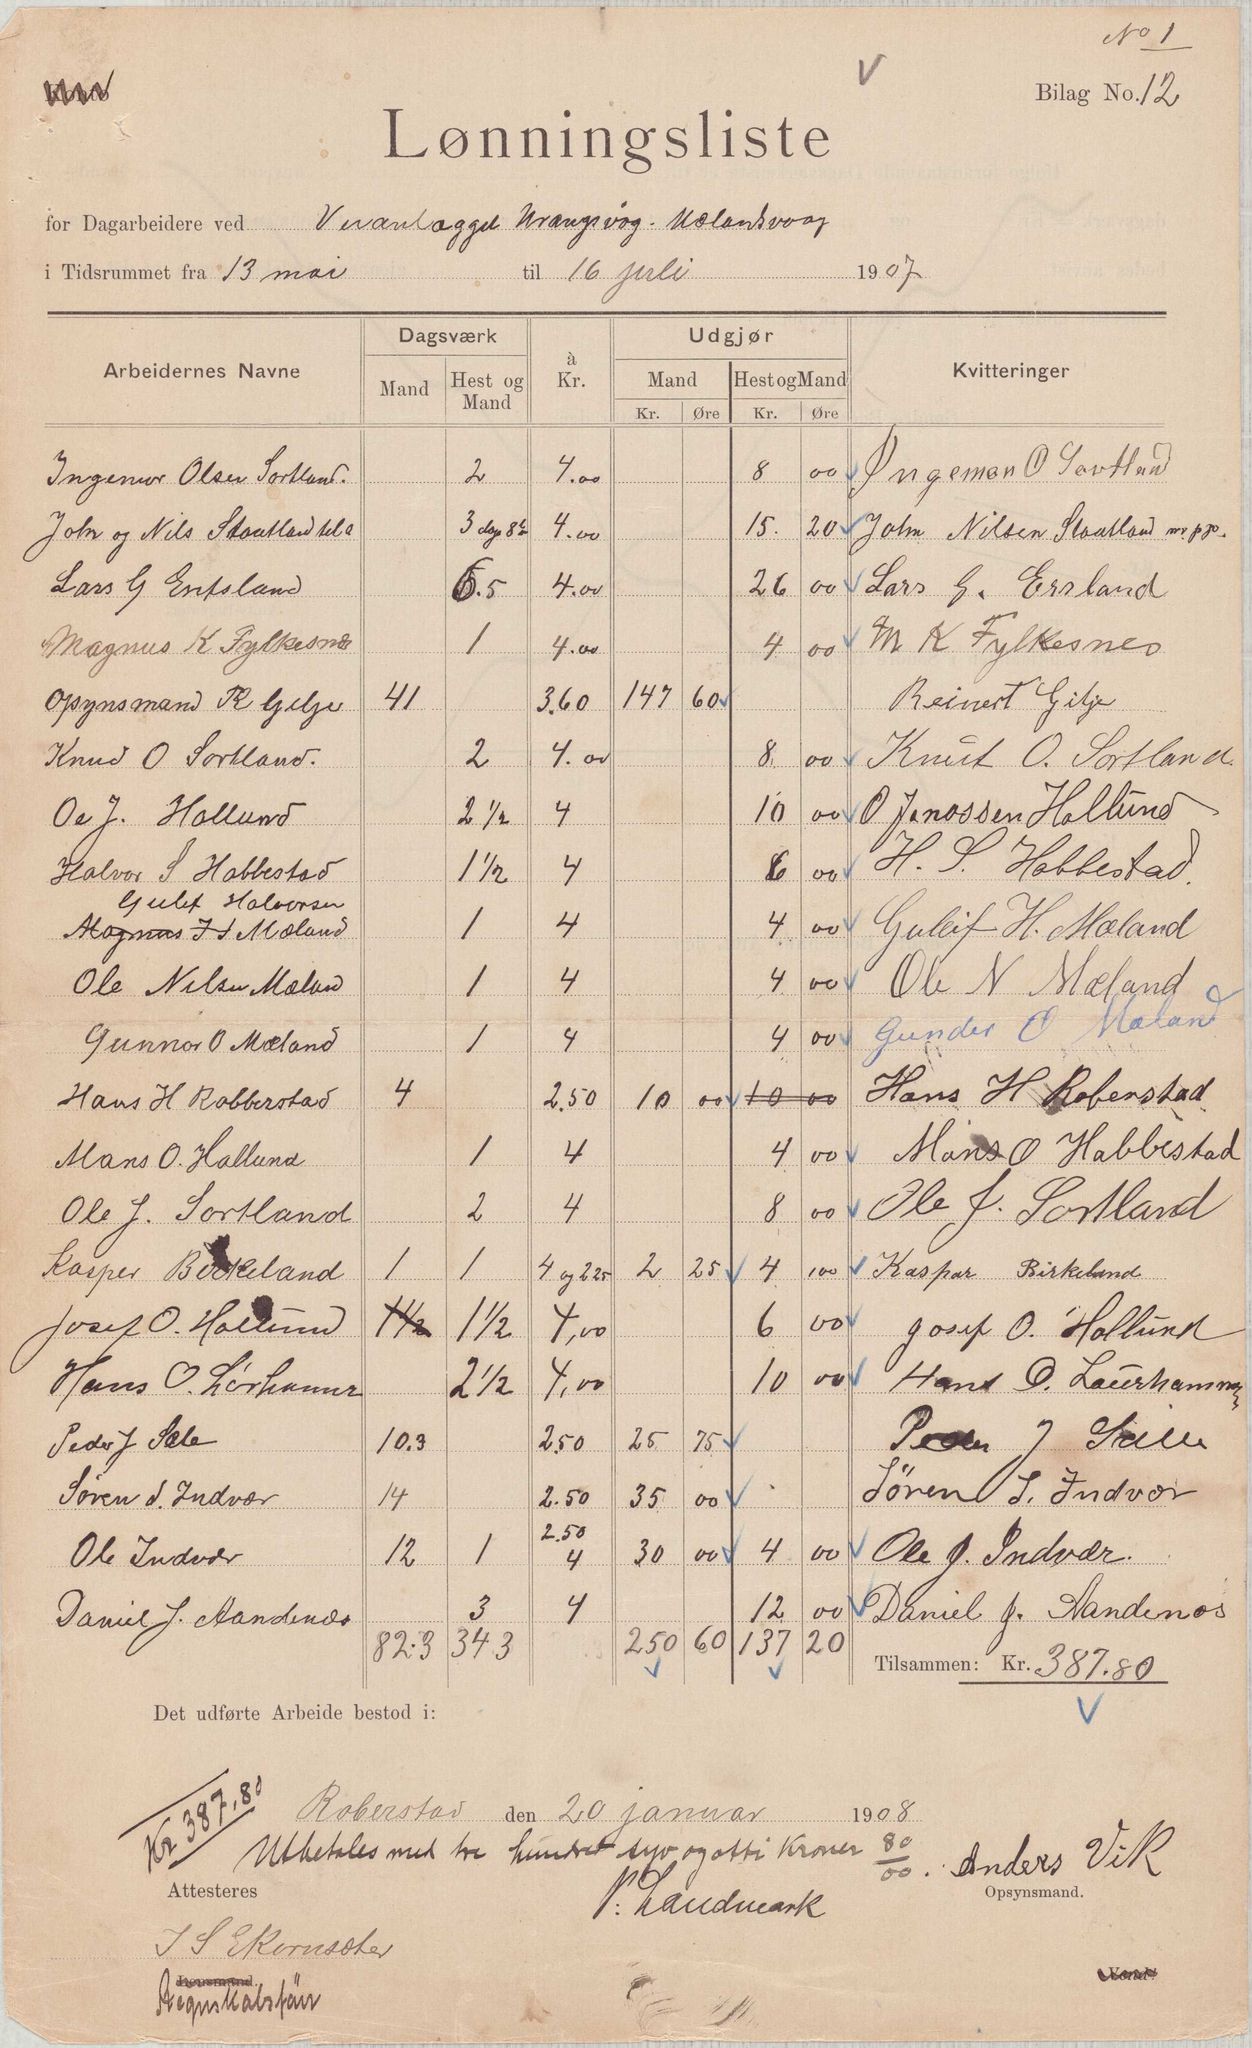 No 1
Bilag No. 12
Lønningsliste
for Dagarbeidere ved Veianlægget Vrangsvog - Mælandsvaag
i Tidsrummet fra 13 mai til 16 juli 1907
Arbeidernes Navne Dagsværk à Kr. Udgjør Kvitteringer
Mand Hest og Mand Mand Hest og Mand
Kr. Øre Kr. Øre
Ingemor Olsen Sortland. 2 4.00 8 00 Ingeman O Sortland
John og Nils Staatland 3 dage 8 t 4.00 15. 20 John Nilsen Staatland
Lars G Entsland 6.5 4.00 26 00 Lars G. Ersland
Magnus K Fylkesnes 1 4.00 4 00 M K Fylkesnes
Opsynsmand R Gilje 41 3.60 147 60 Reinert Gilje
Knud O Sortland. 2 4.00 8 00 Knut O. Sortland
Ole J. Hollund 2 1/2 4 10 00 O Jonassen Hollund
Halvor S Habbestad 1 1/2 4 6 00 H. S. Habbestad.
Guleif Halvorsen
Magnus H Mæland 1 4 4 00 Guleif H. Mæland
Ole Nilsen Mæland 1 4 4 00 Ole N Mæland
Gunnar O Mæland 1 4 4 00 Gunder O Mæland
Hans H Robberstad 4 2.50 10 00 10 00 Hans H Roberstad
Mans O. Hollund 1 4 4 00 Mons O Habbestad
Ole J. Sortland 2 4 8 00 Ole J. Sortland
Kasper Birkeland 1 1 4 og 2 25 2 25 4 00 Kaspar Birkeland
Josef O. Hollund 1 1/2 1 1/2 4,00 6 00 Josef O. Hollund
Hans O. Lørhammer 2 1/2 4,00 10 00 Hans O. Laurhammer
Peder J Sæle 10.3 2.50 25 75 Peder J Sælle
Søren S. Indvær 14 2.50 35 00 Søren S. Indvær
Ole Indvær 12 1 2.50 4 30 00 4 00 Ole J. Indvær.
Daniel J. Aandenæs 3 4 12 00 Daniel J. Aandenæs
82.3 34 3 250 60 137 20 Tilsammen: Kr. 387.80
Det udførte Arbeide bestod i:
Kr 387,80
Roberstad den 20 januar 1908
Utbetales med tre hundret syv og otti Kroner 80/00. Anders Vik
Attesteres P. Landmark Opsynsmand.
I S Ekornsæter
Regnskabsfører